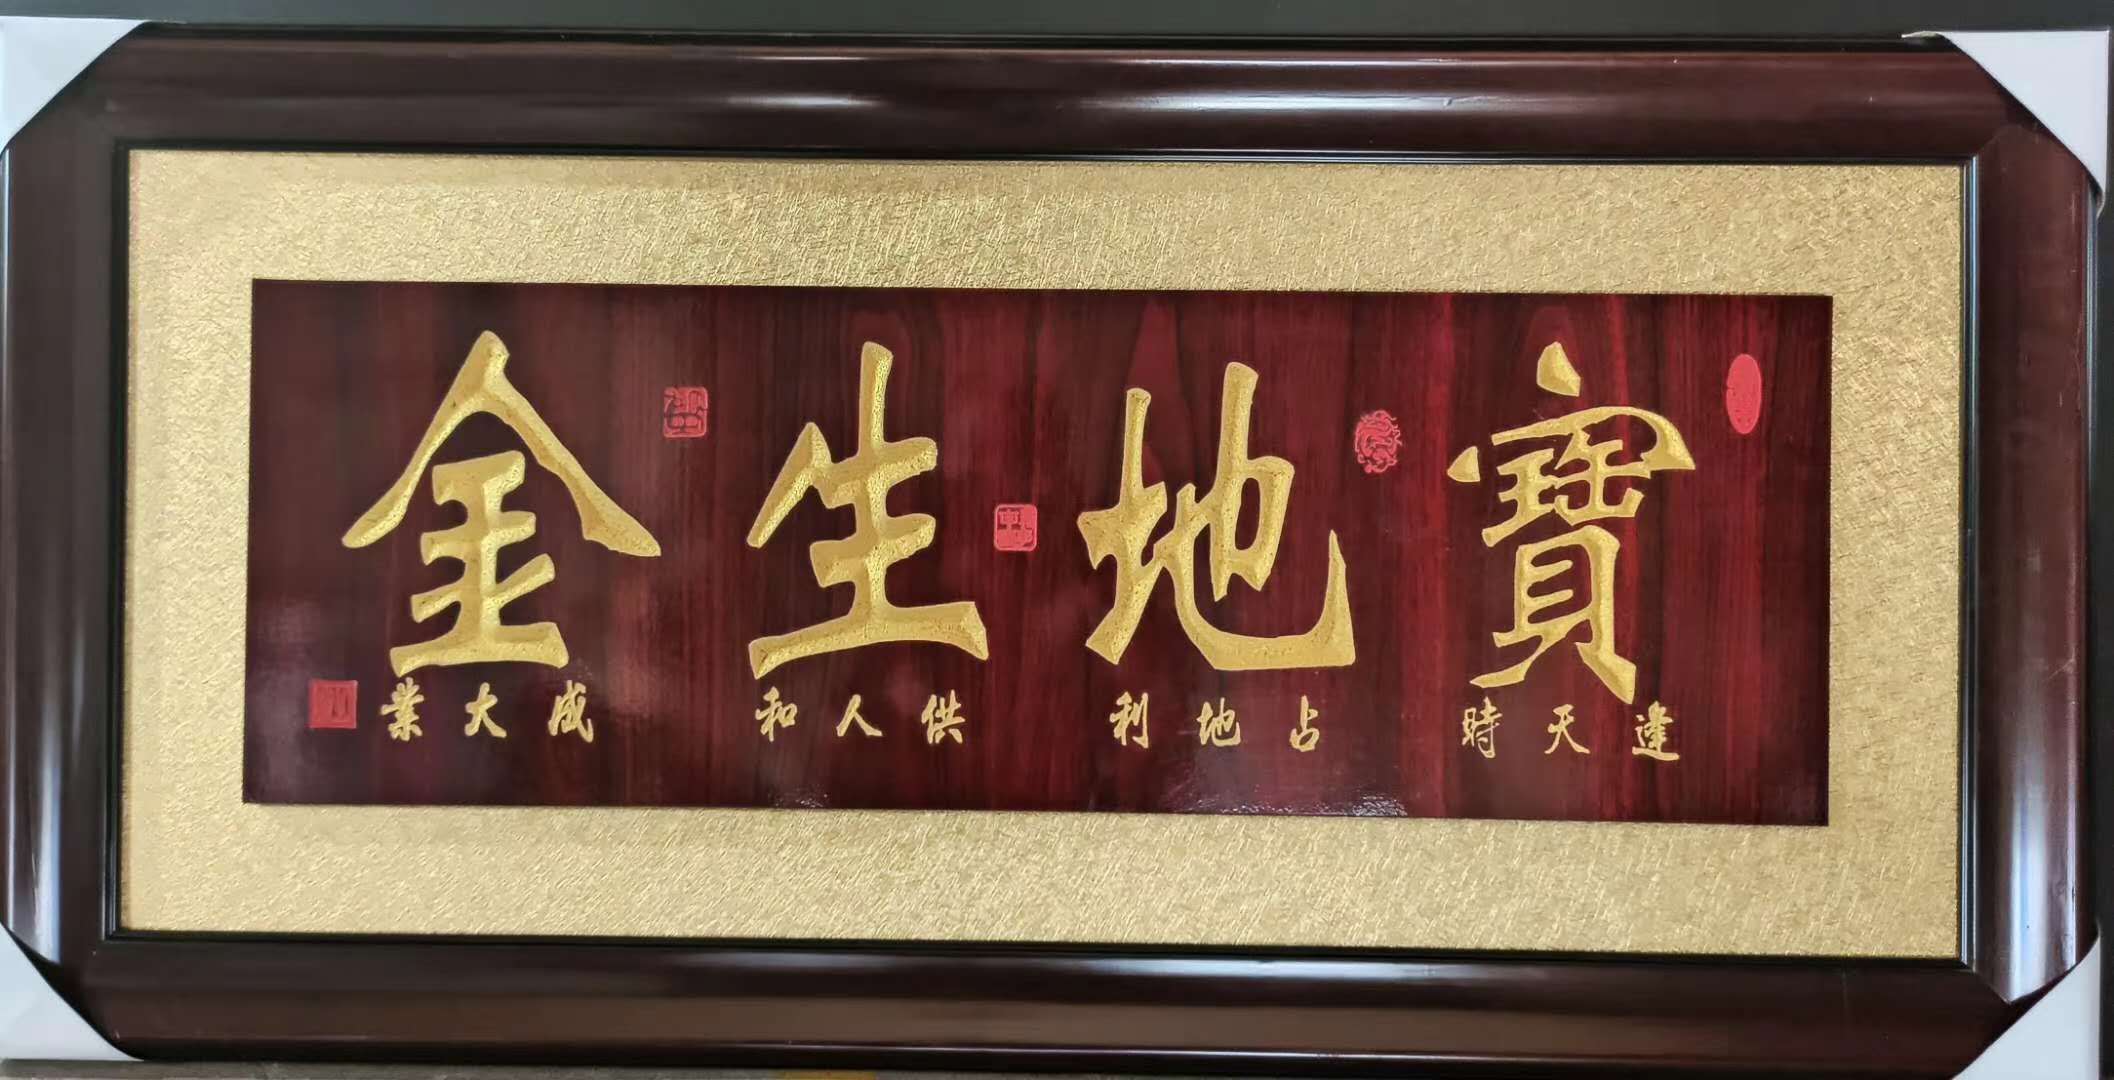 寶地生金
逢天時 占地利 供人和 成大業